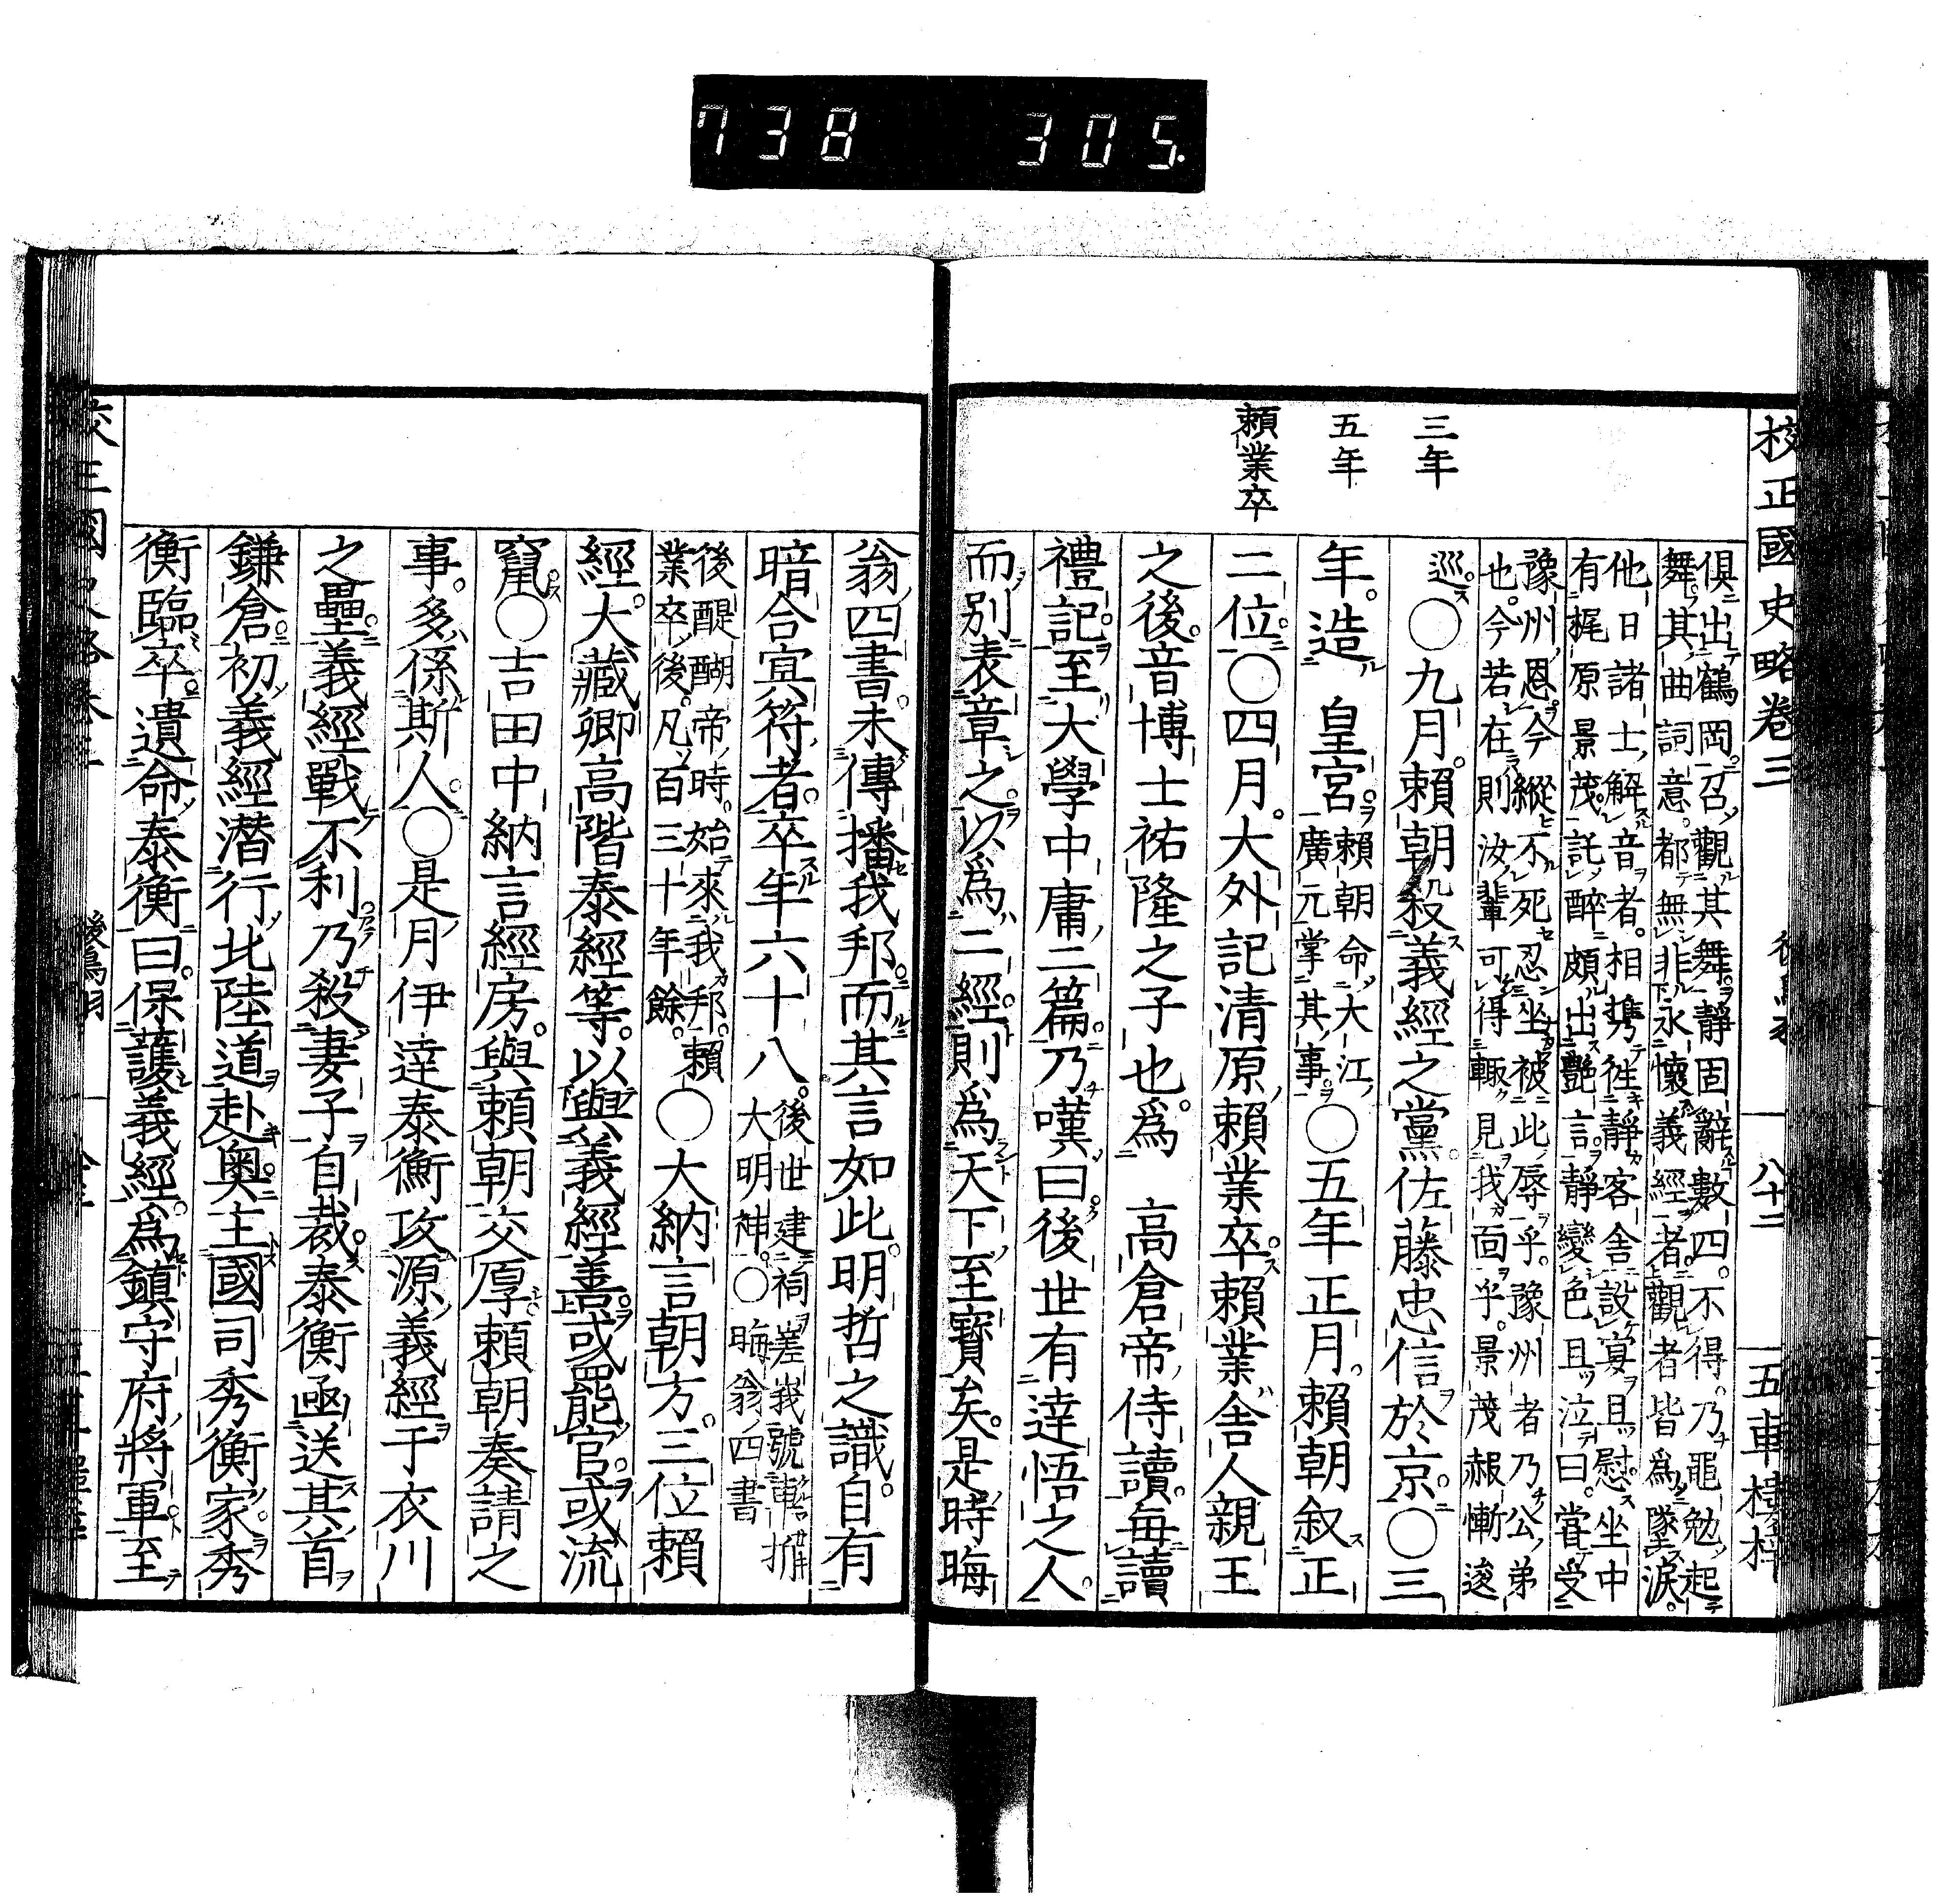 738 305.
校正國史略卷三 八十二 五車樓梓
三年
五年
賴業卒
俱出鶴岡。召觀其舞。靜固辭數四。不得。乃黽勉起
舞。其曲詞意。都無非永懷義經者。觀者皆爲墜淚。
他日諸士解音者。相携往靜客舍設宴且慰。坐中
有梶原景茂。託醉頗出艷言。靜變色且泣曰。嘗受
豫州恩。今縱不死。忍坐被此辱乎。豫州者乃公弟
也。今若在。則汝輩可得輙見我面乎。景茂赧慚逡
巡。〇九月。賴朝殺義經之黨佐藤忠信於京。〇三
年。造 皇宮。賴朝命大江
廣元掌其事。〇五年正月。賴朝叙正
二位。〇四月。大外記清原賴業卒。賴業舍人親王
之後。音博士祐隆之子也。爲 高倉帝侍讀。每讀
禮記。至大學中庸二篇。乃嘆曰。後世有達悟之人。
而別表章之。以爲二經。則爲天下至寶矣。是時晦
翁四書未傳播我邦。而其言如此。明哲之識。自有
暗合冥符者。卒年六十八。後世建祠嵯峩號車折
大明神。〇晦翁四書
後醍醐帝時。始來我邦。賴
業卒後。凡百三十年餘。〇大納言朝方。三位賴
經。大藏卿高階泰經等。以與義經善。或罷官。或流
竄。〇吉田中納言經房。與賴朝交厚。賴朝奏請之
事。多係斯人。〇是月伊達泰衡攻源義經于衣川
之壘。義經戰不利。乃殺妻子自裁。泰衡函送其首
鎌倉。初義經潛行北陸道。赴奧。主國司秀衡家。秀
衡臨卒。遺命泰衡曰。保護義經。爲鎮守府將軍。至